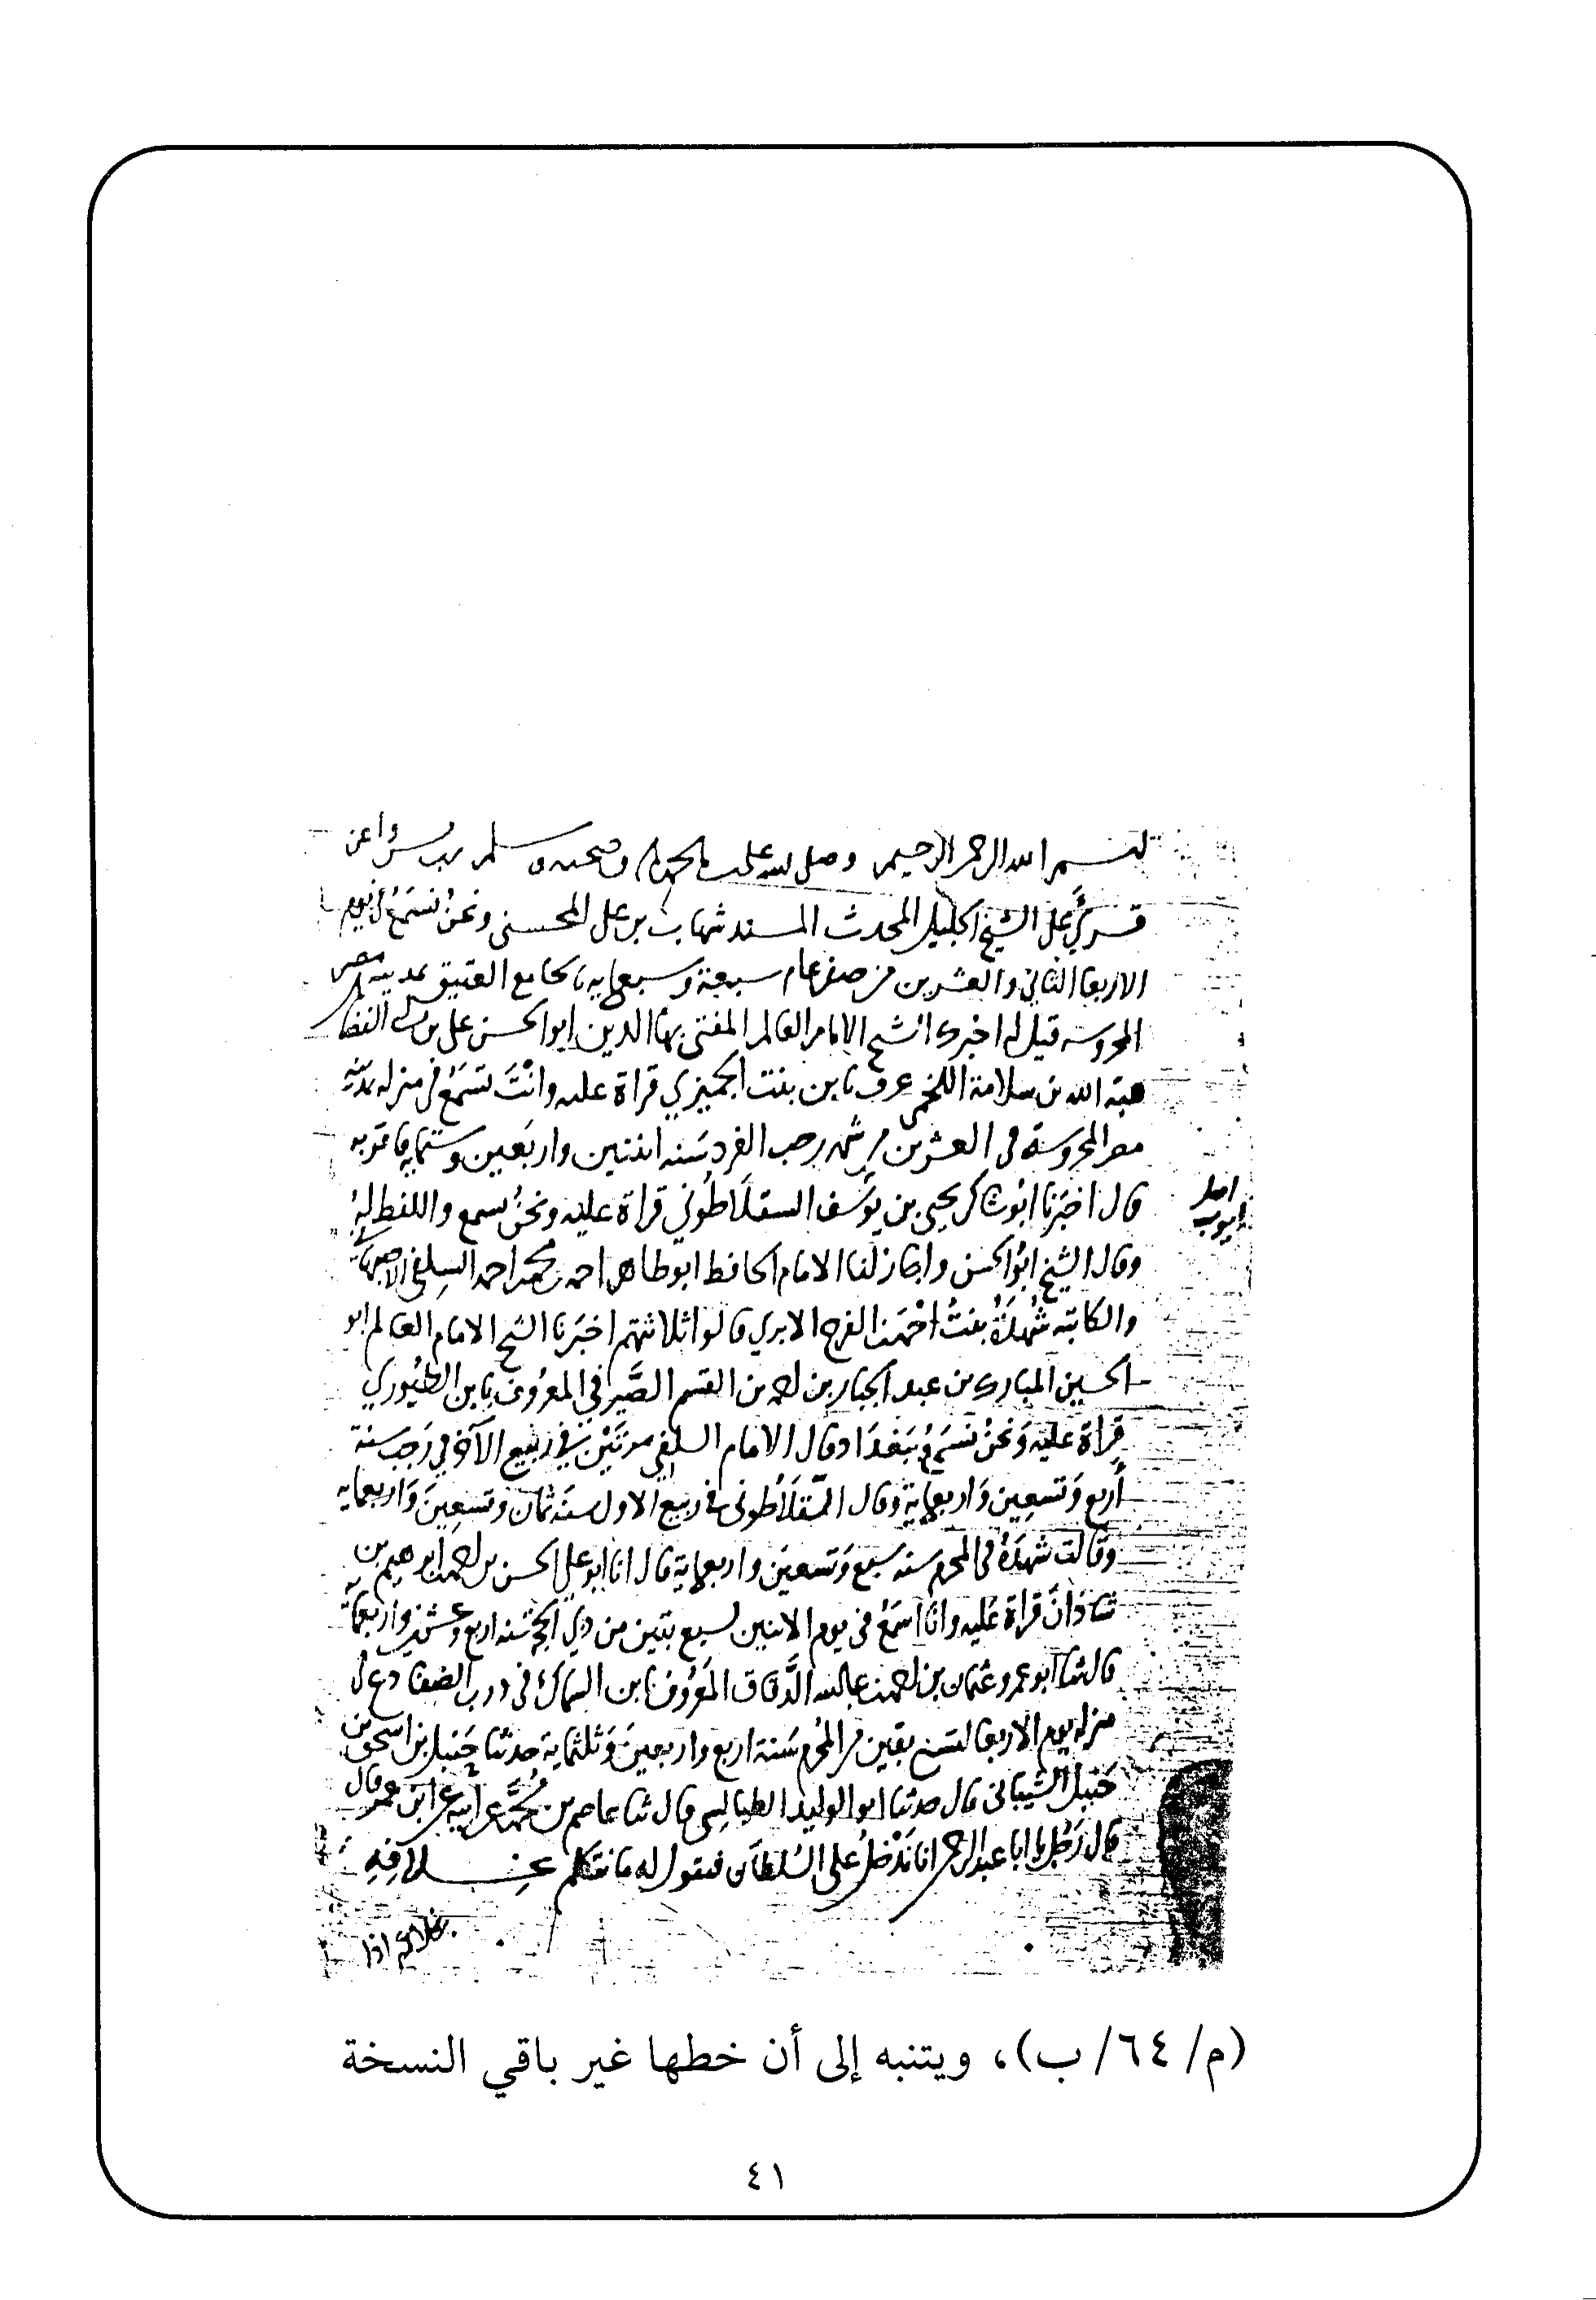 بسم الله الرحمن الرحيم وصلى الله على محمد وصحبه وسلم رب يسر واعن
قرئ على الشيخ الجليل المحدث المسند شهاب بن على المحسنى ونحن نسمع في يوم
الاربعا الثاني والعشرين من صفر عام سبعة وسبعمايه بالجامع العتيق بمدينه مصر
المحروسه قيل له اخبرك الشيخ الامام العالم المفتى بها الدين ابوالحسن على بن الفضا
هبة الله بن سلامة اللخمى عرف بابن بنت الجميزي قراة عليه وانت تسمع في منزله بمدينه
مصر المحروسة فى العشرين من شهر رجب الفرد سنه اثنتين واربعين وستمايه فاقر به
قال اخبرنا ابو شاكر يحيى بن يوسف السقلاطوني قراة عليه ونحن نسمع واللفظ له
اصل
ايوب
وقال الشيخ ابوالحسن واجاز لنا الامام الحافظ ابو طاهر احمد بن محمد بن احمد السلفى الاصبهاني
والكاتبه شهدة بنت احمد بن الفرج الابري قالوا ثلاثتهم اخبرنا الشيخ الامام العالم ابو
الحسين المبارك بن عبد الجبار بن احمد بن القسم الصيرفي المعروف بابن الطيوري
قراة عليه ونحن نسمع ببغداد قال الامام السلفي مرتين في ربيع الآخر وفي رجب سنة
أربع وتسعين واربعماية وقال السقلاطونى في ربيع الاول سنة ثمان وتسعين واربعمايه
وقالت شهدة فى المحرم سنه سبع وتسعين واربعماية قال انا ابو علي الحسن بن احمد بن ابرهيم بن
شاذان قراة عليه وانا اسمع فى يوم الاثنين لسبع بقين من ذي الحجة سنه اربع وعشرين واربعماية
قال ثنا ابو عمرو عثمان بن احمد بن عبدالله الدقاق المعروف بابن السماك فى درب الضفادع فى
منزله يوم الاربعا لتسع بقين من المحرم سنة اربع واربعين وثلثماية حدثنا حنبل بن اسحق بن
حنبل الشيبانى قال حدثنا ابو الوليد الطيالسى قال ثنا عاصم بن محمد عن ابيه عن ابن عمر قال
قال رجل يا ابا عبد الرحمن انا ندخل على السلطان فنقول له ما نتكلم بخلافه
بخلافه اذا
(م/ ٦٤/ ب)، ويتنبه إلى أن خطها غير باقي النسخة
٤١